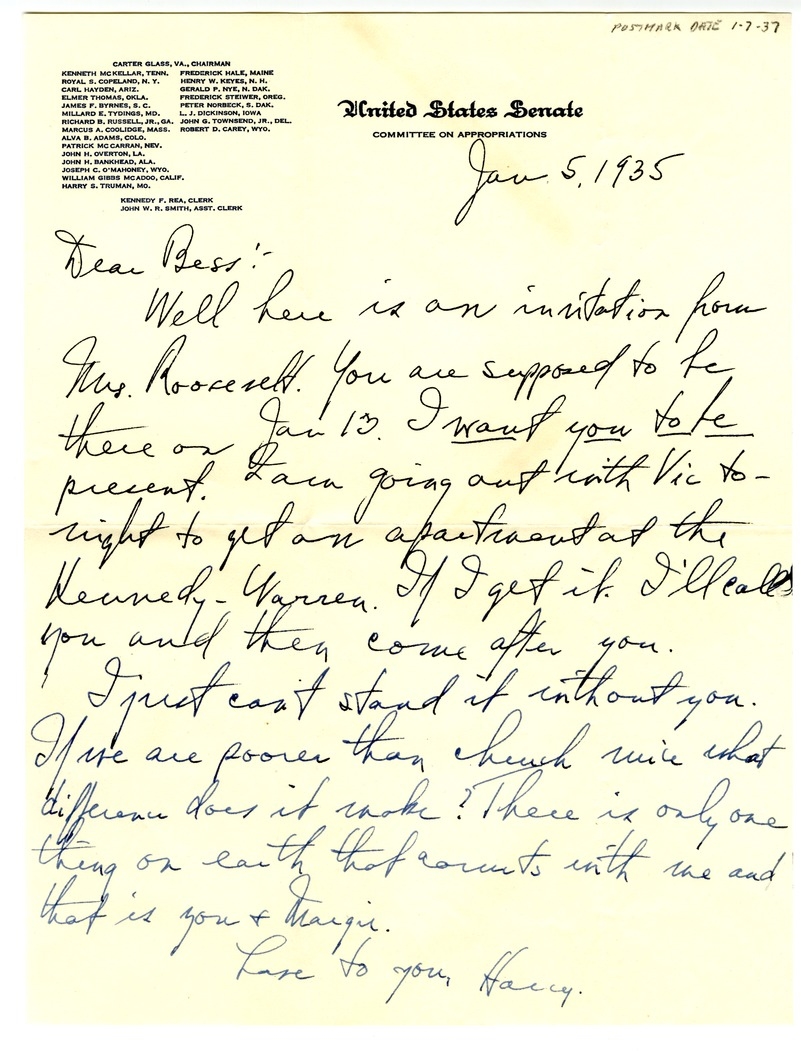 POSTMARK DATE 1-7-37
CARTER GLASS, VA., CHAIRMAN
KENNETH MCKELLAR, TENN. FREDERICK HALE, MAINE
ROYAL S. COPELAND, N. Y. HENRY W. KEYES, N. H.
CARL HAYDEN, ARIZ. GERALD P. NYE, N. DAK.
ELMER THOMAS, OKLA. FREDERICK STEIWER, OREG.
JAMES F. BYRNES, S. C. PETER NORBECK, S. DAK.
MILLARD E. TYDINGS, MD. L. J. DICKINSON, IOWA
RICHARD B. RUSSELL, JR., GA. JOHN G. TOWNSEND, JR., DEL.
MARCUS A. COOLIDGE, MASS. ROBERT D. CAREY, WYO.
ALVA B. ADAMS, COLO.
PATRICK MC CARRAN, NEV.
JOHN H. OVERTON, LA.
JOHN H. BANKHEAD, ALA.
JOSEPH C. O'MAHONEY, WYO.
WILLIAM GIBBS MC ADOO, CALIF.
HARRY S. TRUMAN, MO.
KENNEDY F. REA, CLERK
JOHN W. R. SMITH, ASST. CLERK
United States Senate
COMMITTEE ON APPROPRIATIONS
Jan 5, 1935
Dear Bess:-
Well here is an invitation from
Mrs. Roosevelt. You are supposed to be
there on Jan 13. I want you to be
present. I am going out with Vic to-
night to get an apartment at the
Kennedy-Warren. If I get it I'll call
you and then come after you.
I just can't stand it without you.
If we are poorer than church mice what
difference does it make? There is only one
thing on earth that counts with me and
that is you & Margie.
Love to you, Harry.